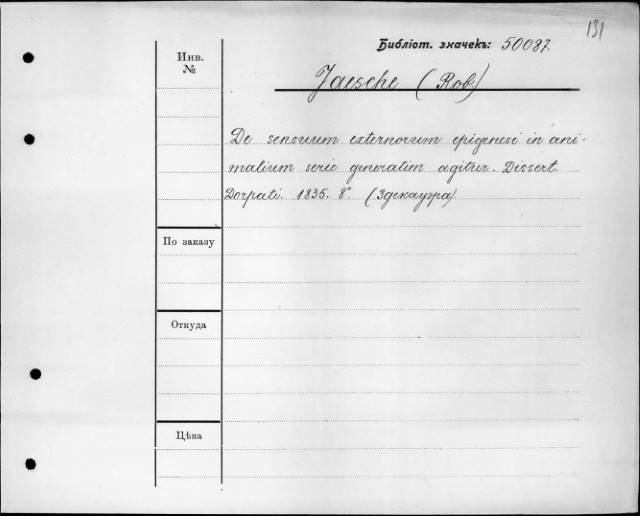 131
Библіот. значекъ: 50087.
Инв.
№
Jaesche (Rob)
De sensuum externorum epigenesi in ani-
malium serie generatim agitur. Dissert.
Dorpati. 1835. 8°. (Здекауэра)
По заказу
Откуда
Цѣна